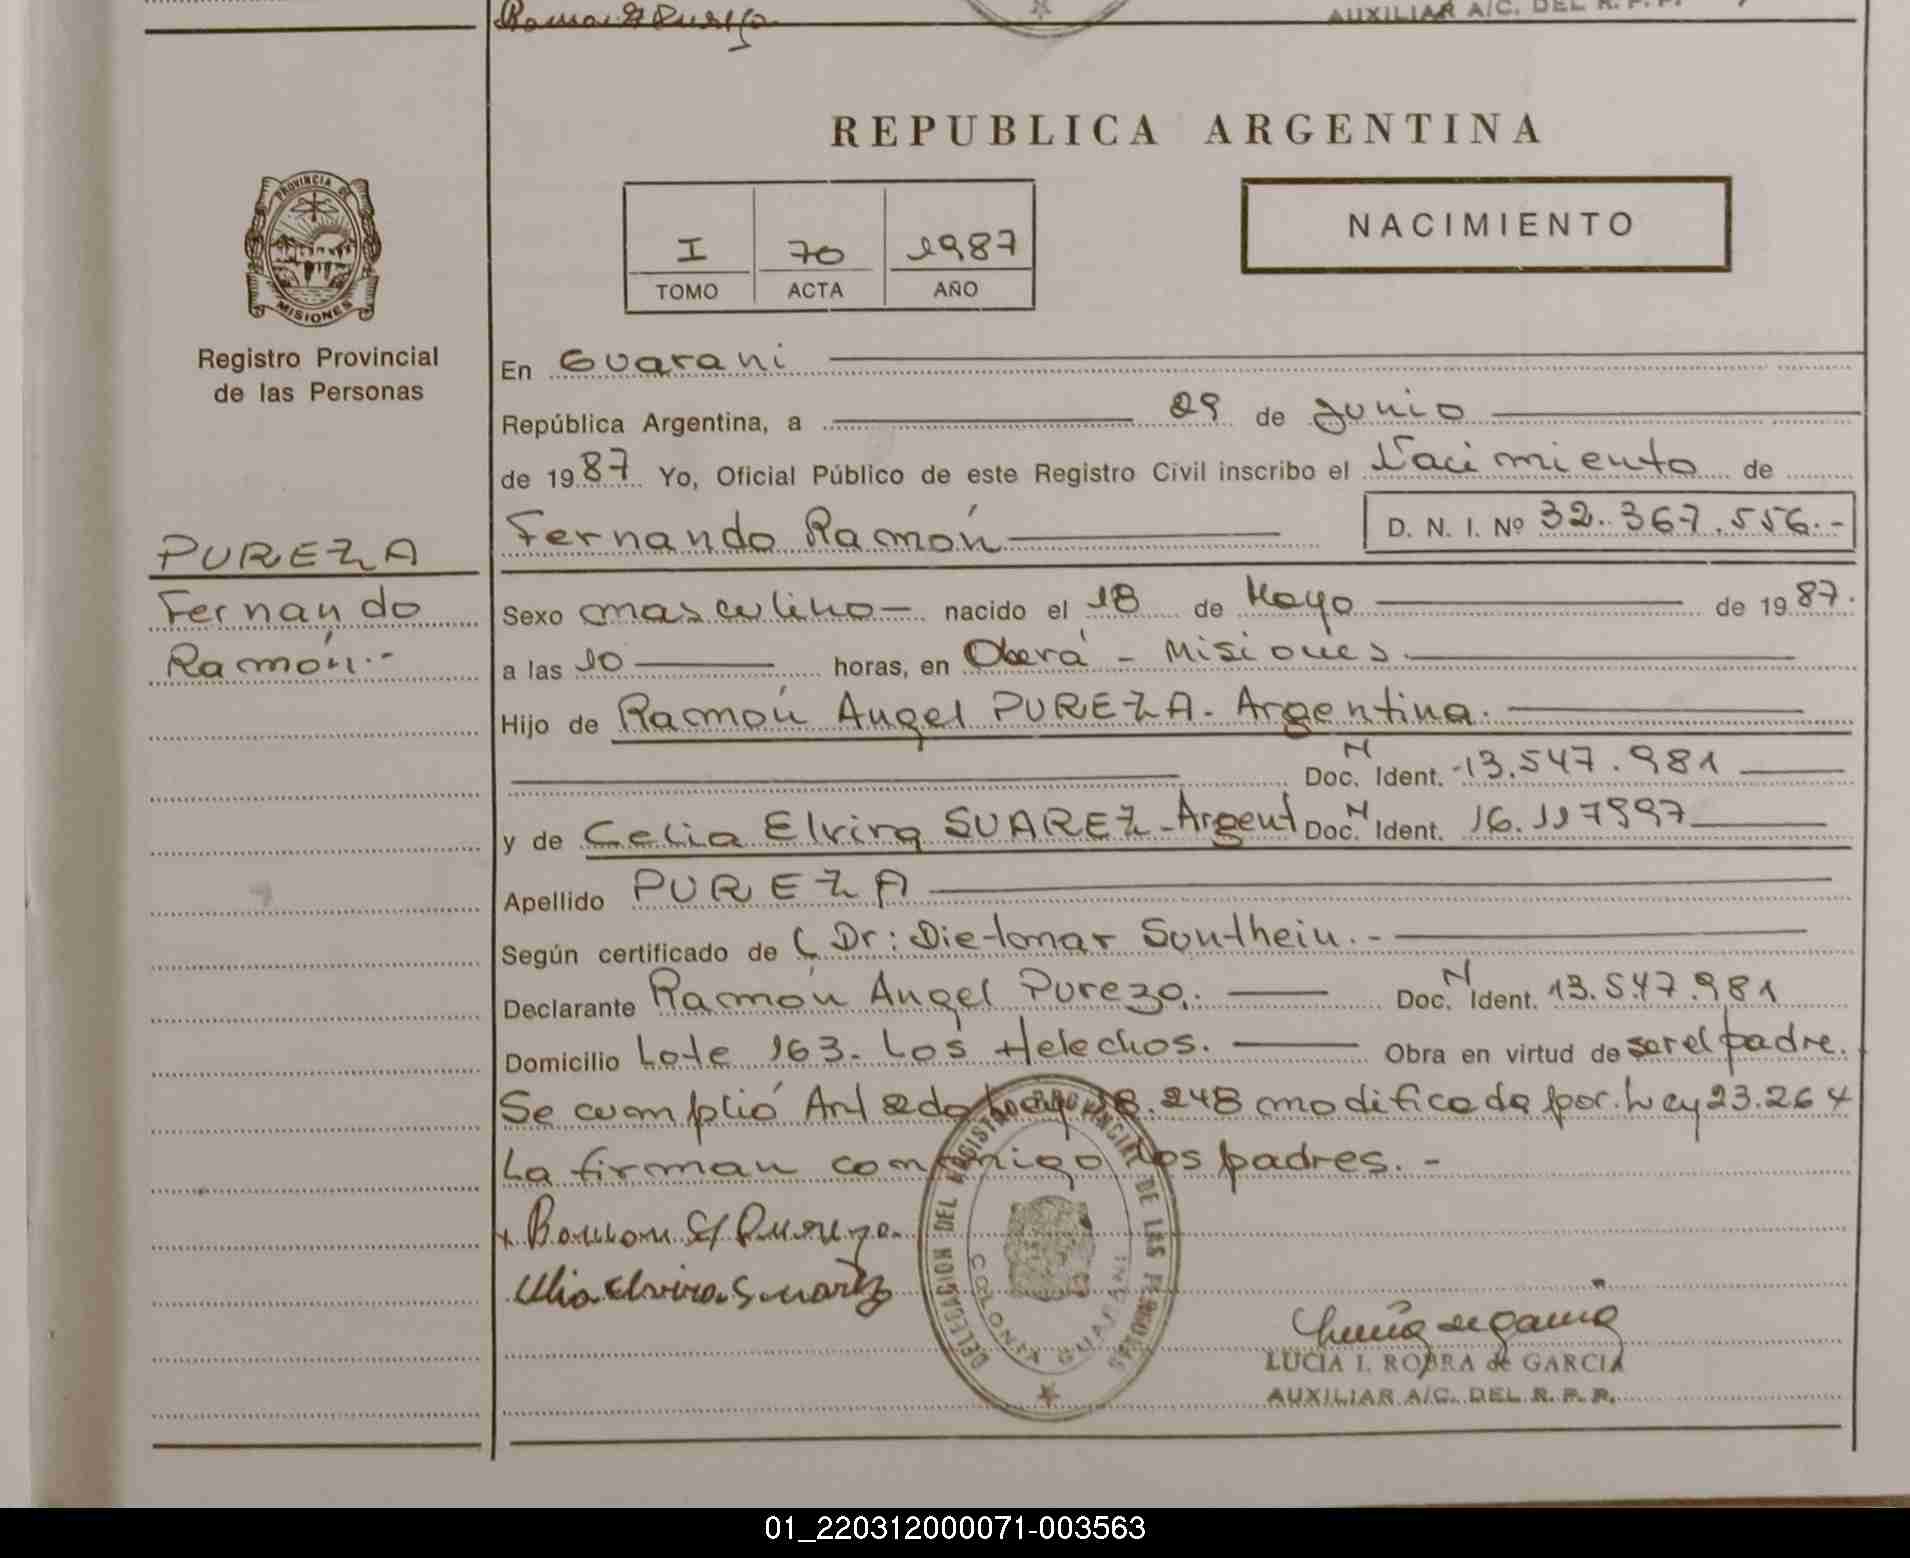 Ramon A Pureza
AUXILIAR A/C. DEL R. P. P.
REPUBLICA ARGENTINA
PROVINCIA DE
MISIONES
Registro Provincial
de las Personas
I 70 1987
TOMO ACTA AÑO
NACIMIENTO
En Guarani
República Argentina, a 29 de Junio
de 1987 Yo, Oficial Público de este Registro Civil inscribo el Nacimiento de
Fernando Ramón D. N. I. Nº 32.367.556.-
PUREZA
Fernando
Ramón.-
Sexo masculino- nacido el 18 de Mayo de 1987.
a las 10 horas, en Oberá - Misiones.
Hijo de Ramón Angel PUREZA. Argentina.
Doc. N Ident. 13.547.981
y de Celia Elvira SUAREZ - Argent Doc. N Ident. 16.117997
Apellido PUREZA
Según certificado de Dr: Dietomar Sontheiu.-
Declarante Ramón Angel Pureza. Doc. N Ident. 13.547.981
Domicilio Lote 163. Los Helechos. Obra en virtud de ser el padre.
Se cumplió Art 2do Ley 18.248 modificada por Ley 23.264
La firman conmigo los padres.-
x Ramon A Pureza
Celia Elvira Suarez
DELEGACION DEL REGISTRO PROVINCIAL DE LAS PERSONAS
COLONIA GUARANI
LUCIA I. ROBRA de GARCIA
AUXILIAR A/C. DEL R. P. P.
01_220312000071-003563